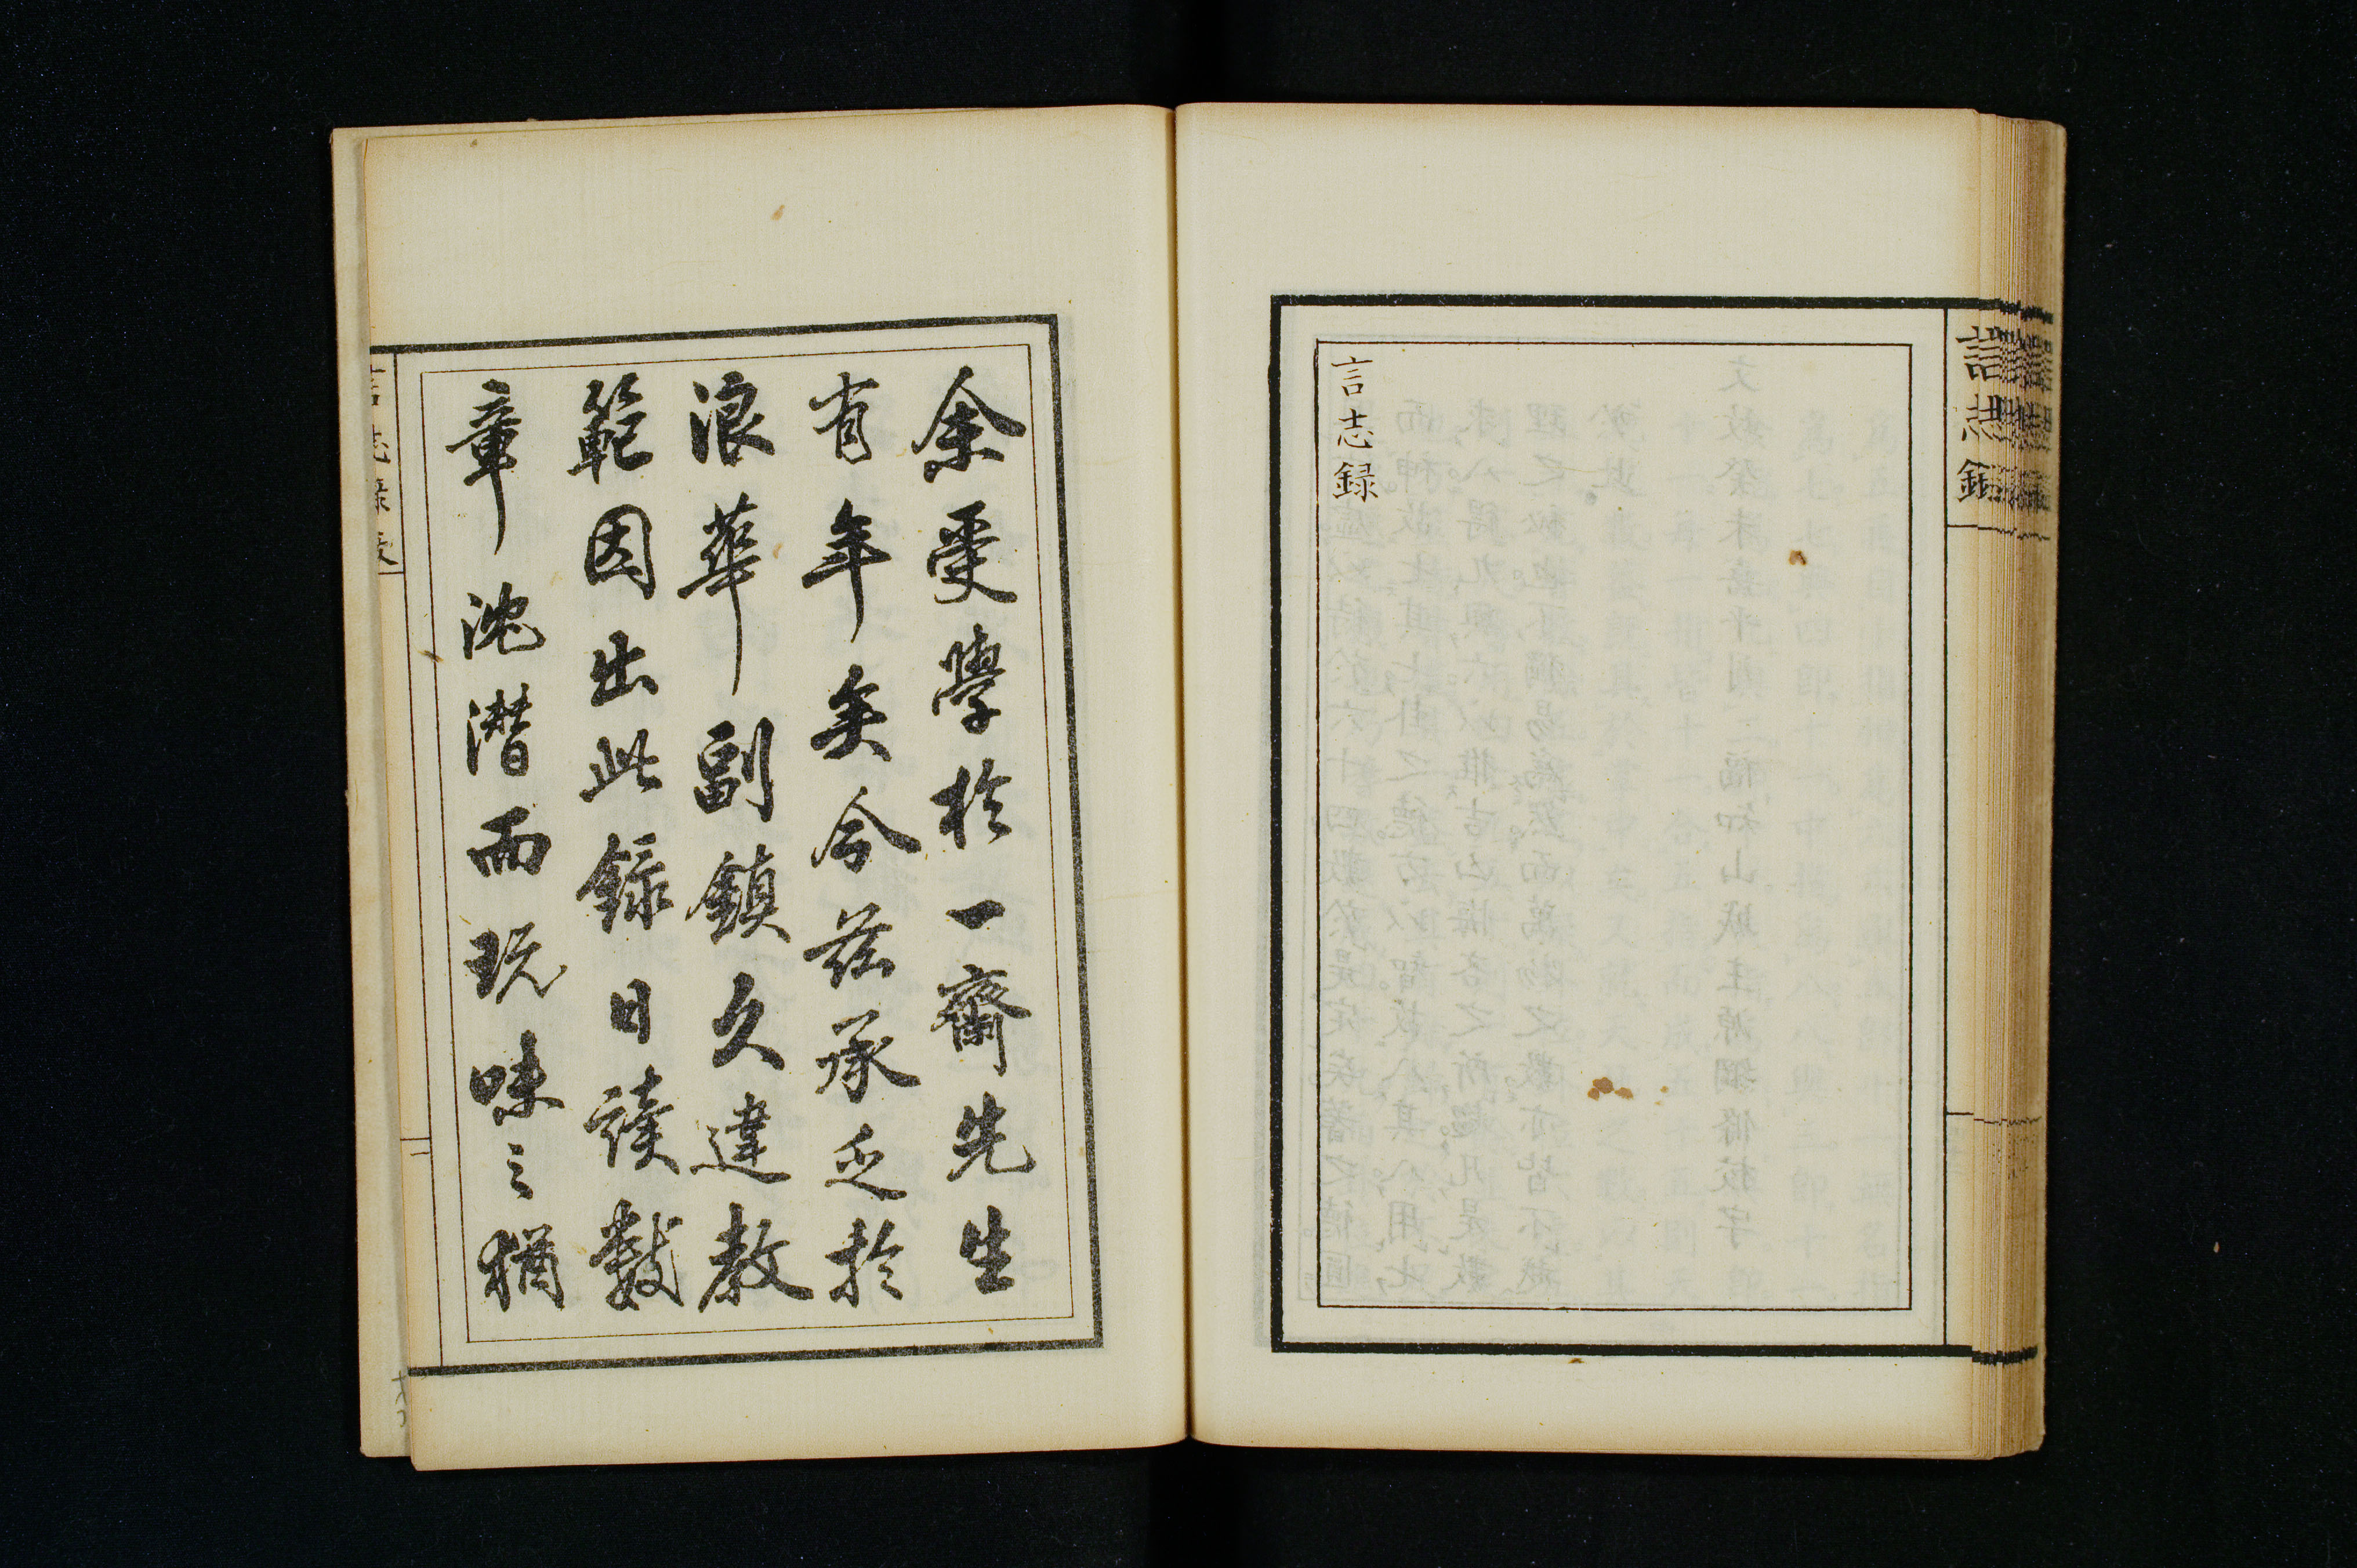 言志録
言志録
余受學於一齋先生
有年矣今茲承乏於
浪華副鎮久違教
範因出此錄日讀數
章沈潜而玩味之猶
言志録跋
一